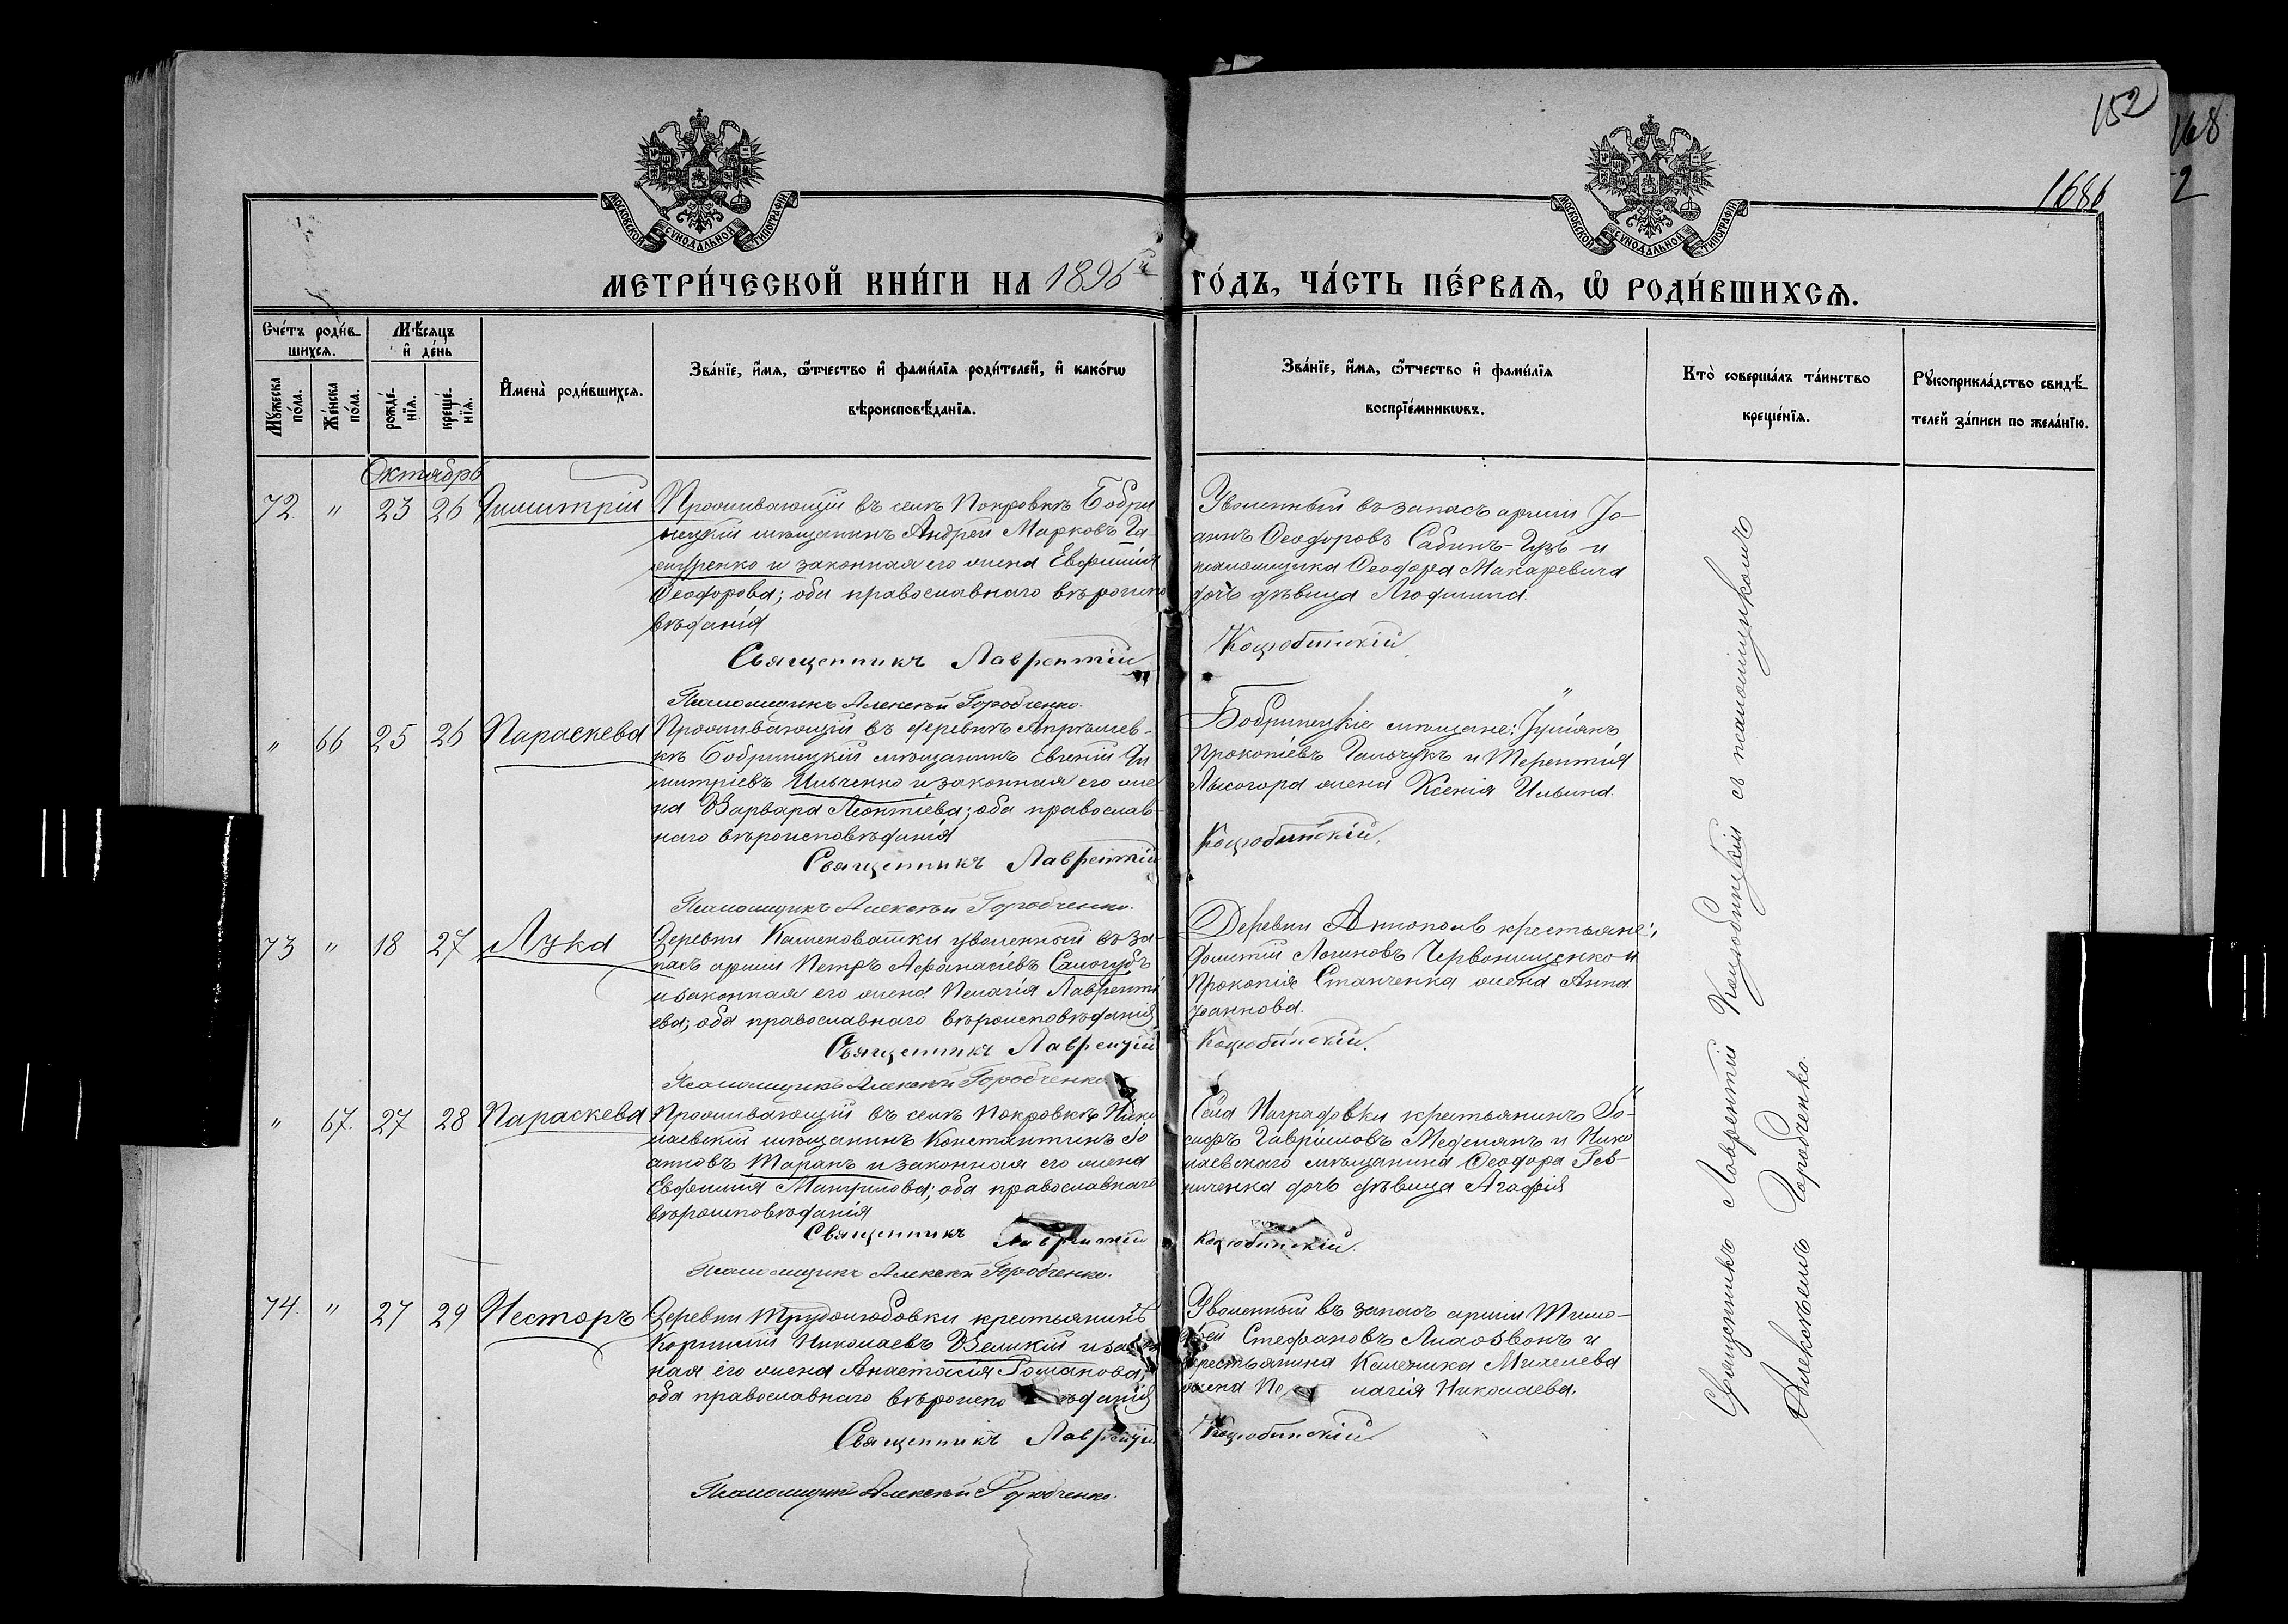 152
168
2
1686
МОСКОВСКОЙ СѴНОДАЛЬНОЙ ТИПОГРАФІИ
МОСКОВСКОЙ СѴНОДАЛЬНОЙ ТИПОГРАФІИ
МЕТРИ́ЧЕСКОЙ КНИ́ГИ НА 1896й ГО́ДЪ, ЧА́СТЬ ПЕ́РВАѦ, Ѡ҆ РОДИ́ВШИХСѦ.
Сче́тъ роди́в-
шихсѧ.
Мѣ́сѧцъ
и҆ де́нь
Мꙋ́жеска по́ла.
Же́нска по́ла.
рожде́-нїѧ.
креще́-нїѧ.
И҆мена̀ роди́вшихсѧ.
Зва́нїе, и҆́мѧ, ѻ҆́тчество и҆ фами́лїѧ роди́телей, и҆ како́гѡ
вѣроисповѣ́данїѧ.
Зва́нїе, и҆́мѧ, ѻ҆́тчество и҆ фами́лїѧ
воспрїе́мникѡвъ.
Кто̀ соверша́лъ та́инство
креще́нїѧ.
Рꙋкоприкла́дство свидѣ́-
телей за́писи по жела́нїю.
Октябрь
72 " 23 26 Димитрій
Проживающій въ селѣ Покровкѣ Бобри
нецкій мѣщанинъ Андрей Марковъ
и законная его жена Евфимія
Ѳеодорова; оба православнаго вѣроиспо
вѣданія
Священникъ Лаврентій
Псаломщикъ Алексѣй Горобченко.
Уволенный въ запасъ арміи Іо-
аннъ Ѳеодоровъ и
псаломщика Ѳеодора Макаревича
дочь дѣвица
Коцюбинскій
" 66 25 26 Параскева
Проживающій въ деревнѣ Апрѣлев-
кѣ Бобринецкій мѣщанинъ Евгеній Ди
митріевъ Ильченко и законная его же
на Варвара Леонтіева; оба православ-
наго вѣроисповѣданія
Священникъ Лаврентій
Псаломщикъ Алексѣй Горобченко.
Бобринецкіе мѣщане:
Прокопіевъ и Терентія
Лысогора жена Ксенія Ильина.
Коцюбинскій.
73 " 18 27 Лука
Деревни Каменоватки уволенный въ за-
пасъ арміи Петръ Аѳанасіевъ Самогубъ
и законная его жена Пелагія Лавренті
ева; оба православнаго вѣроисповѣданія
Священникъ Лаврентій
Псаломщикъ Алексѣй Горобченко
Деревни Антополь крестьяне:
Логиновъ и
Прокопія Станченка жена Анна
Іоаннова.
Коцюбинскій.
" 67. 27 28 Параскева
Проживающій въ селѣ Покровкѣ Нико
лаевскій мѣщанинъ Константинъ Іо
анновъ Таранъ и законная его жена
Евфимія; оба православнаго
вѣроисповѣданія
Священникъ Лаврентій
Псаломщикъ Алексѣй Горобченко.
Села крестьянинъ Іо-
сифъ Гавріиловъ и Нико
лаевскаго мѣщанина Ѳеодора Рев-
ниченка дочь дѣвица Агафія
Коцюбинскій.
74. " 27 29 Несторъ
Деревни Трудолюбовки крестьянинъ
Корнилій Николаевъ Великій и закон
ная его жена Анастасія Романова;
оба православнаго вѣроиспо вѣданія
Священникъ Лаврентій
Псаломщикъ Алексѣй Горобченко.
Уволенный въ запасъ арміи Тимо-
ѳей Стефановъ и
крестьянина Михелева
жена Пелагія Николаева.
Коцюбинскій
Священникъ Лаврентій Коцюбинскій съ псаломщикомъ
Алексѣемъ Горобченко.